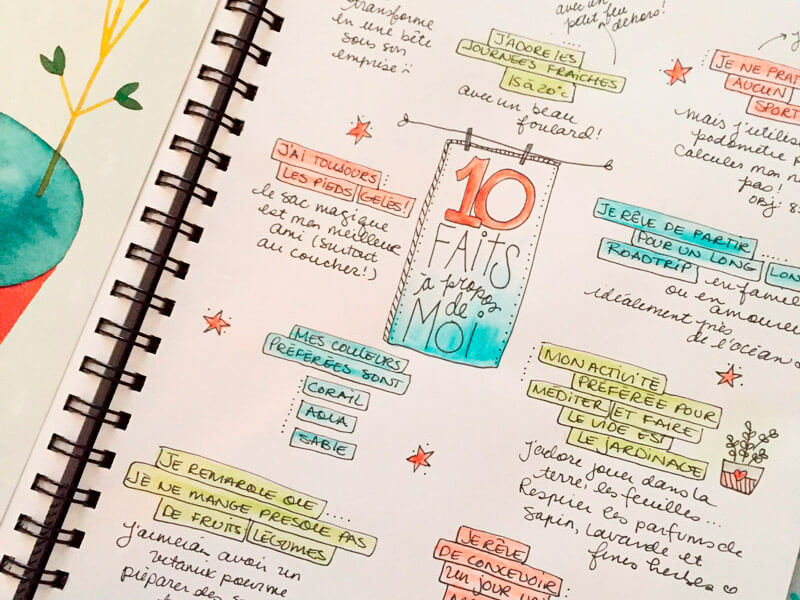 transforme
en une bête
sous son
emprise
avec un
petit feu
dehors!
J'ADORE LES
JOURNÉES FRAÎCHES
15 à 20°C
avec un beau
foulard!
JE NE PRAT
AUCUN
SPORT
mais j'utilise
podomètre p
calculer mon n
pas!
OBJ: 8
J'AI TOUJOURS
LES PIEDS GELÉS!
le sac magique
est mon meilleur
ami (surtout
au coucher!)
10
FAITS
à propos
de
MOI
JE RÊLE DE PARTIR
POUR UN LONG LON
ROADTRIP en famil
ou en amoure
idéalement près
de l'océan
MES COULEURS
PRÉFÉRÉES SONT
CORAIL
AQUA
SABLE
MON ACTIVITÉ
PRÉFÉRÉE POUR
MÉDITER ET FAIRE
LE VIDE EST
LE JARDINAGE
J'adore jouer dans la
terre, les feuilles...
Respirer les parfums de
sapin, lavande et
fines herbes
JE REMARQUE QUE
JE NE MANGE PRESQUE PAS
DE FRUITS LÉGUMES
j'aimerais avoir un
préparer des
JE RÊLE
DE CONCEVOIR
UN JOUR UN